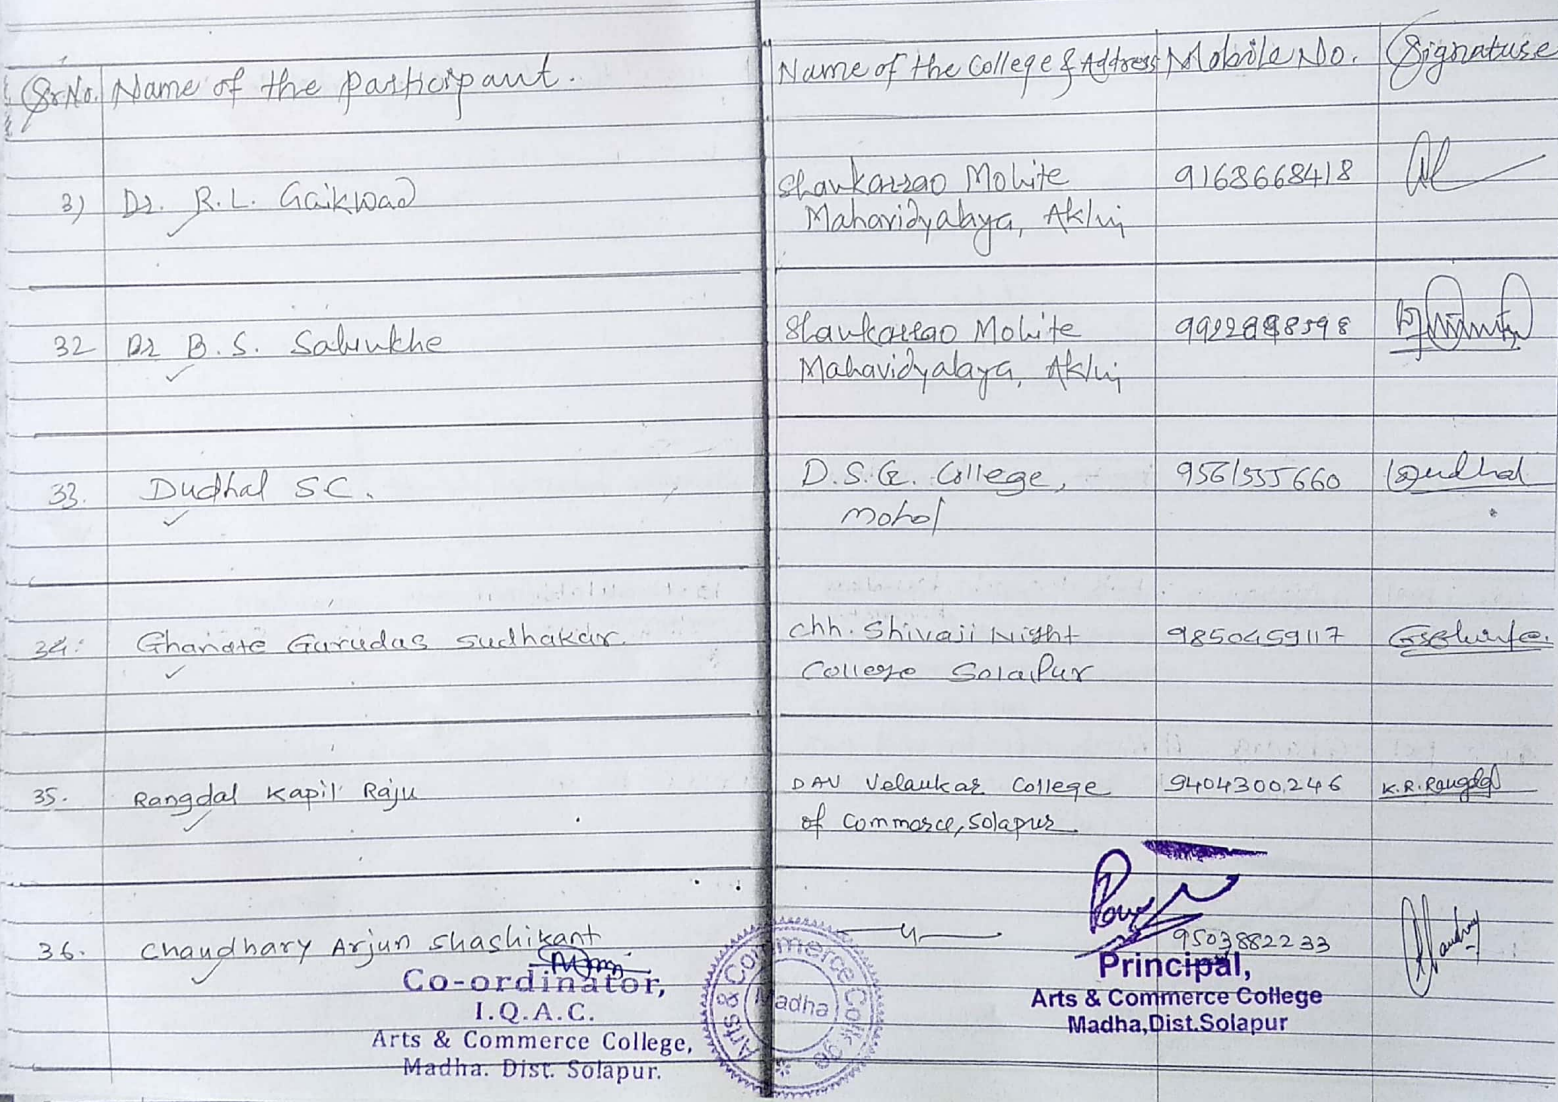 Sr No. Name of the participant. Name of the College & Address Mobile No. Signature
31) Dr. R.L. Gaikwad Shankarrao Mohite 9168668418
Mahavidyalaya, Akluj
32 Dr B.S. Salunkhe Shankarrao Mohite
Mahavidyalaya, Akluj
33. Dudhal S C. D.S.G. College, 9561555660 Dudhal
Mohol
34. Ghanate Gurudas Sudhakar. Chh. Shivaji Night 9850459117
College Solapur
35. Rangdal Kapil Raju DAV Velankar College 9404300246 K.R. Rangdal
of Commerce, Solapur
36. Chaudhary Arjun Shashikant — 11 — 9503882233
Co-ordinator,
I.Q.A.C.
Arts & Commerce College,
Madha. Dist. Solapur.
Arts & Commerce College
Madha
Principal,
Arts & Commerce College
Madha,Dist.Solapur